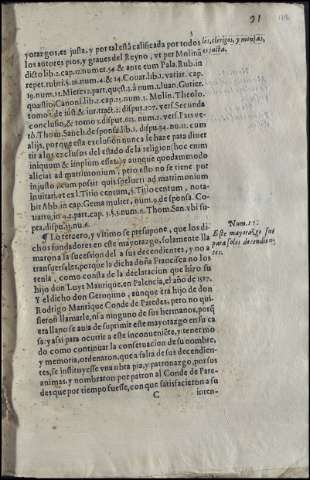 91
yorazgos, es justa, y por tal está calificada por todos
los autores pios, y graues del Reyno, vt per Molinā
dicto lib.2.cap.12.numer.54.& ante eum Pala.Rub.in
repet.rubri.§.16.num.4.& 14.Couar.lib.1.variar.cap.
19.num.11.Mieres.1.part.quæst.2.à num.1.Iuan.Gutier.
quæstio.Canoni.lib.2.cap.15.num.1.Molin.Theolo.
conclusio, & tomo 3.disput.
tb.Thom.Sanch.de sponsa.lib.1.disp.34.nu.11.cum
alijs, porque esta exclusion nunca se haze para diuer
tir a los exclusos del estado de la religion (hoc enim
iniquum & impium esset) y aunque quodammodo
aliciat ad matrimonium, pero esto no se tiene por
injusto, cum possit quis spelueri ad matrimonium
inuitari, et ex l.Titio centum, §.Titio centum, nota-
bit Abb.in cap.Gema mulier, num.9.de sponsa.Co-
uarru.in 4.2.part.cap.3.§.2.num.2.Thom.San.vbi su-
pra, disp.33.nu.6.
¶ Lo tercero, y vltimo se presupone, que los di-
chos fundadores en este mayorazgo, solamente lla
maron a la sucession del a sus decendientes, y no a
transuersales, porque la dicha doña Francisca no los
tenia, como consta de la declaracion que hizo su
hijo don Luys Manrique, en Palencia, el año de 1577.
Y el dicho don Geronimo, aunque era hijo de don
Rodrigo Manrique Conde de Paredes, pero no qui-
sieron llamarle, ni a ninguno de sus hermanos, porq̃
era llano se auia de suprimir este mayorazgo en su ca
sa: y assi para ocurrir a este inconueniēte, y tener mo
do como continuar la conseruacion de su nombre,
y memoria, ordenaron, que a falta de sus decendien-
tes, se instituyesse vna obra pia, y patronazgo, por sus
animas, y nombraron por patron al Conde de Pare-
des que por tiempo fuesse, con que satisfacieron a su
C
inten-
los, clerigos, y monjas,
es justa.
Num. 17.
Este mayorazgo fue
para solos decendien-
tes.